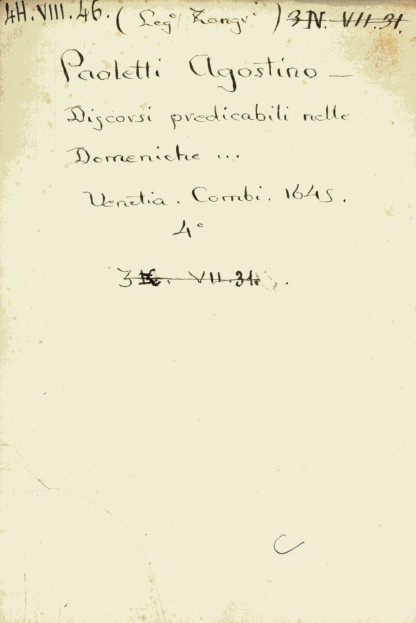 4H.VIII.46. (Leg° Zangri) 3N. VII.31.
Paoletti Agostino —
Discorsi predicabili nelle
Domeniche ...
Venetia. Combi. 1645.
4°
3 VII.31.